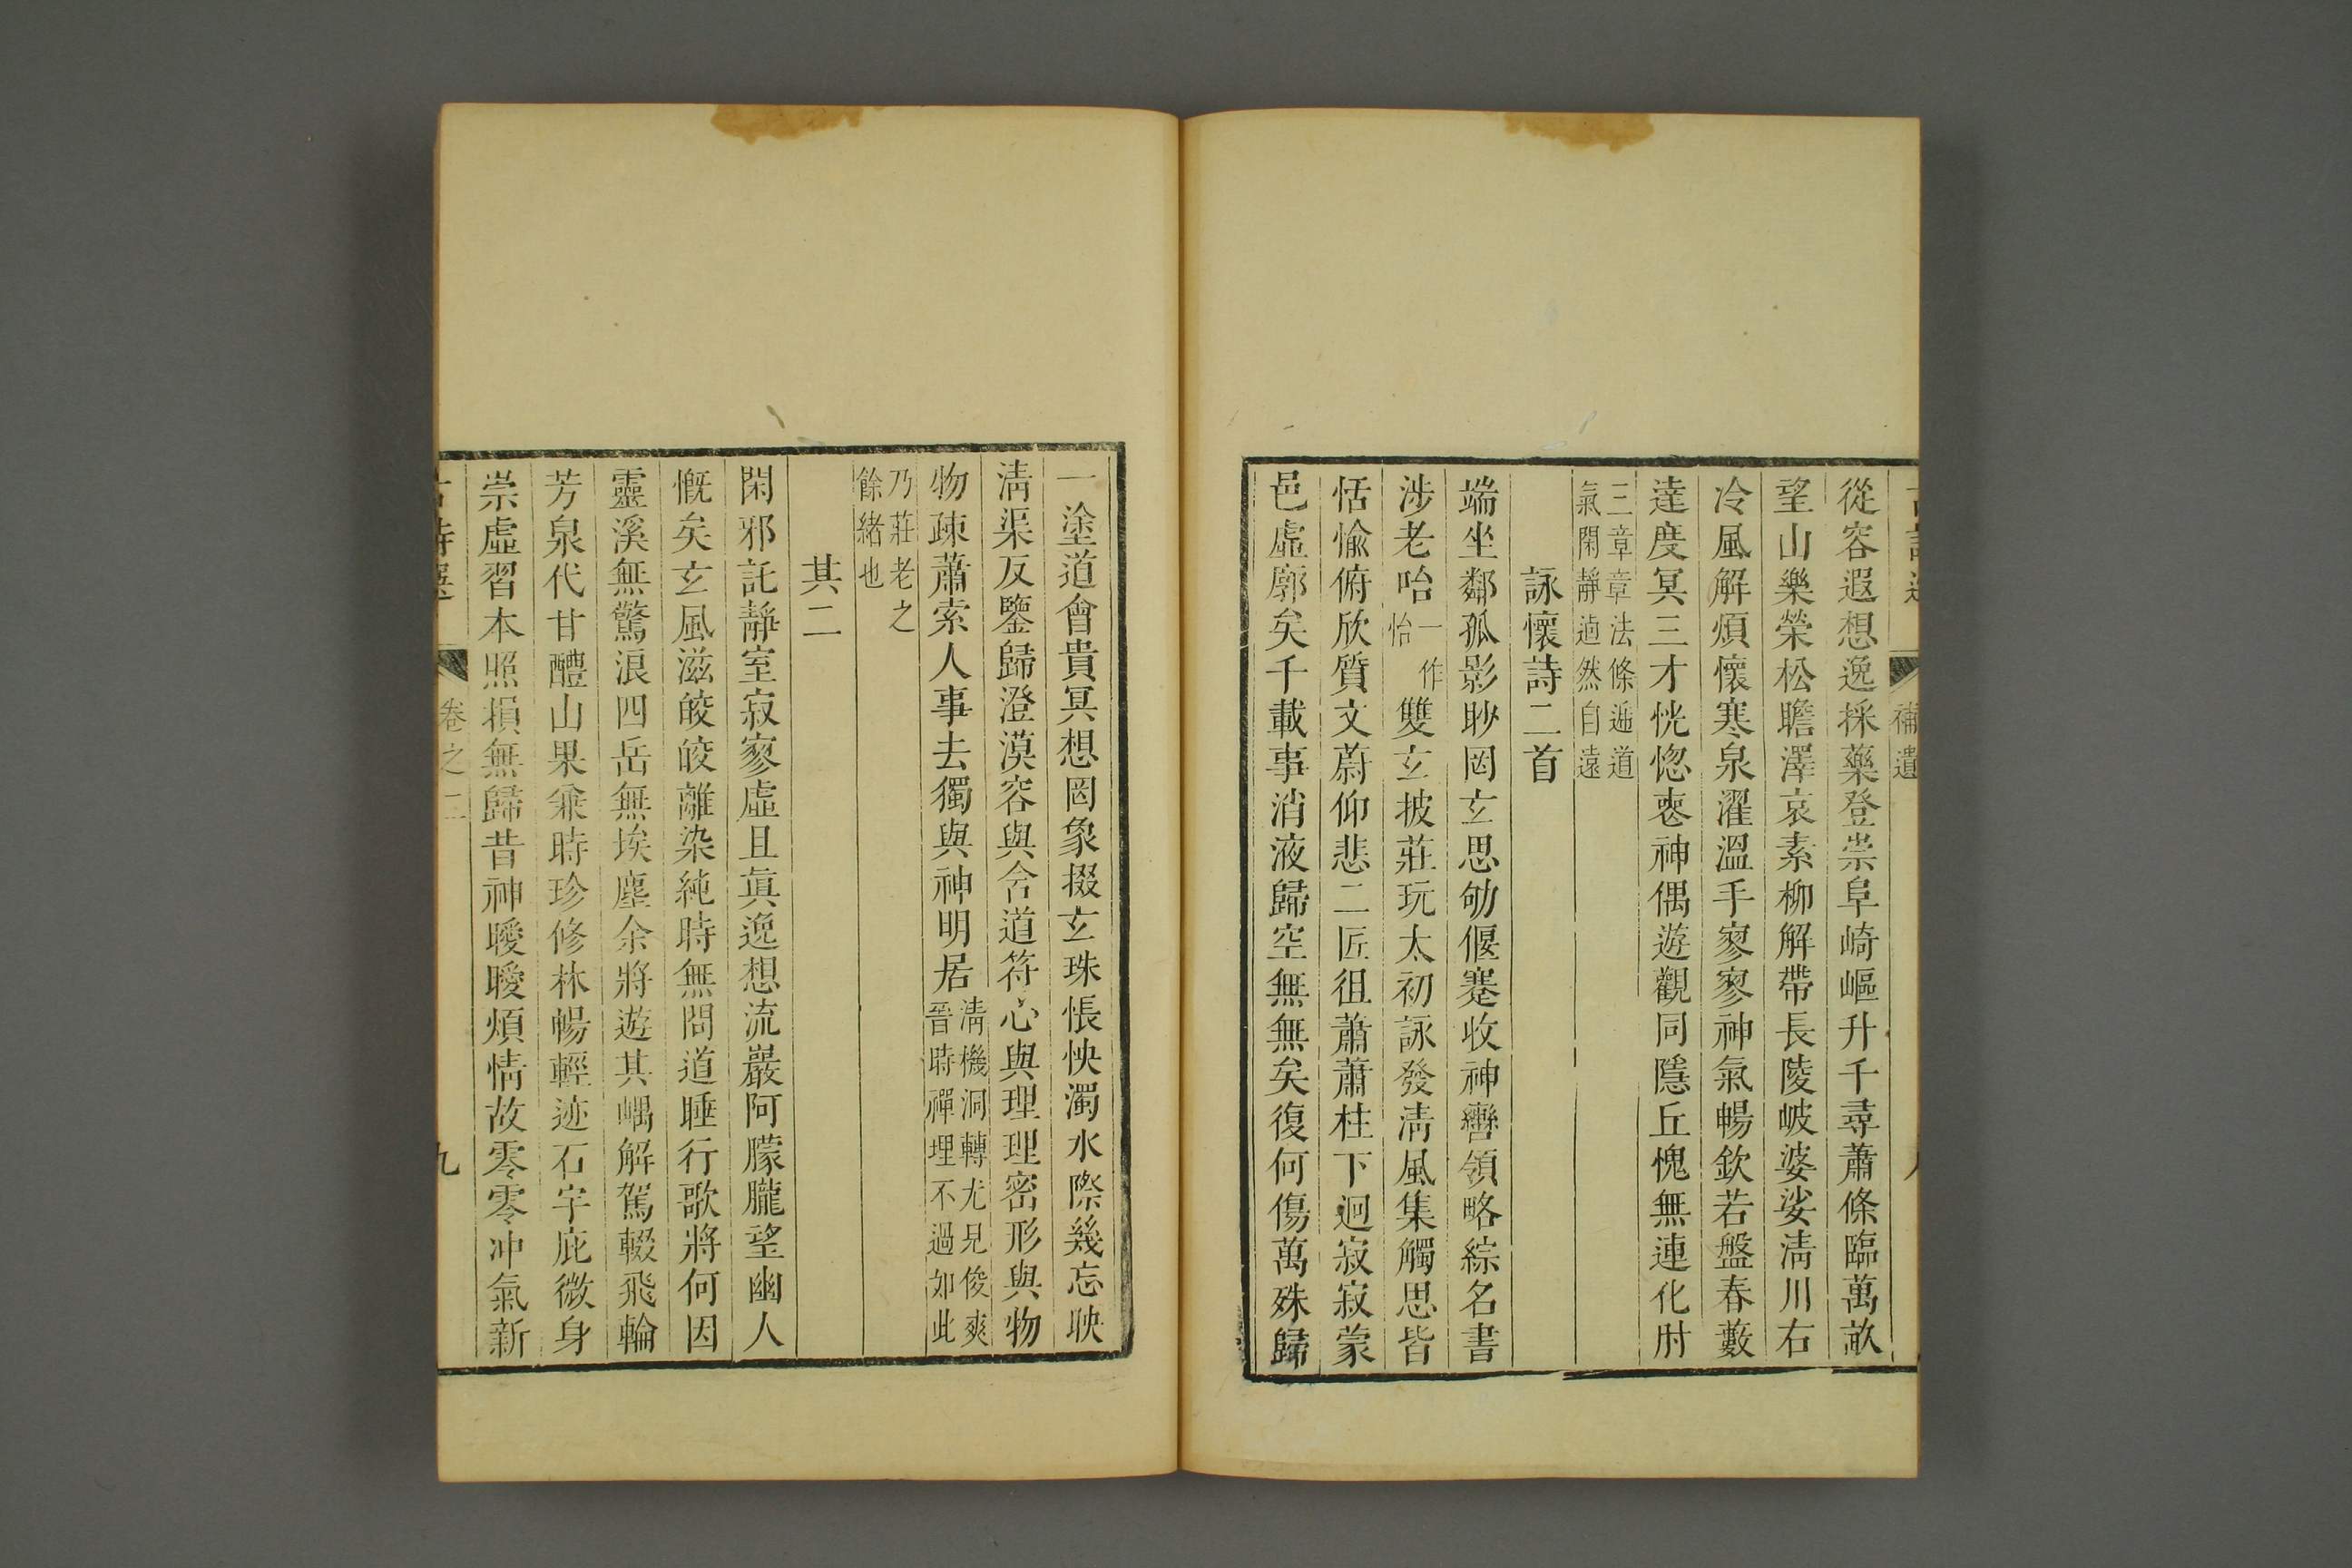 補遺
從容遐想逸採藥登崇阜崎嶇升千尋蕭條臨萬畝
望山樂榮松瞻澤哀素柳解帶長陵岥婆娑清川右
冷風解煩懷寒泉濯溫手寥寥神氣暢欽若盤春藪
達度冥三才恍惚喪神偶遊觀同隱丘愧無連化肘
三章章法條遞道
氣閑靜逌然自遠
詠懷詩二首
端坐鄰孤影眇罔玄思劬偃蹇收神轡領略綜名書
涉老咍一作怡雙玄披莊玩太初詠發清風集觸思皆
恬愉俯欣質文蔚仰悲二匠徂蕭蕭柱下迥寂寂蒙
邑虛廓矣千載事消液歸空無無矣復何傷萬殊歸
一塗道會貴冥想罔象掇玄珠悵怏濁水際幾忘映
清渠反鑒歸澄漠容與含道符心與理理密形與物
物疎蕭索人事去獨與神明居清機洞轉尤見俊爽晉時禪理不過如此
乃莊老之
餘緒也
其二
閑邪託靜室寂寥虛且真逸想流巖阿朦朧望幽人
慨矣玄風滋皎皎離染純時無問道睡行歌將何因
靈溪無驚浪四岳無埃塵余將遊其嵎解駕輟飛輪
芳泉代甘醴山果兼時珍修林暢輕迹石宇庇微身
崇虛習本照損無歸昔神曖曖煩情故零零沖氣新
卷之二
九